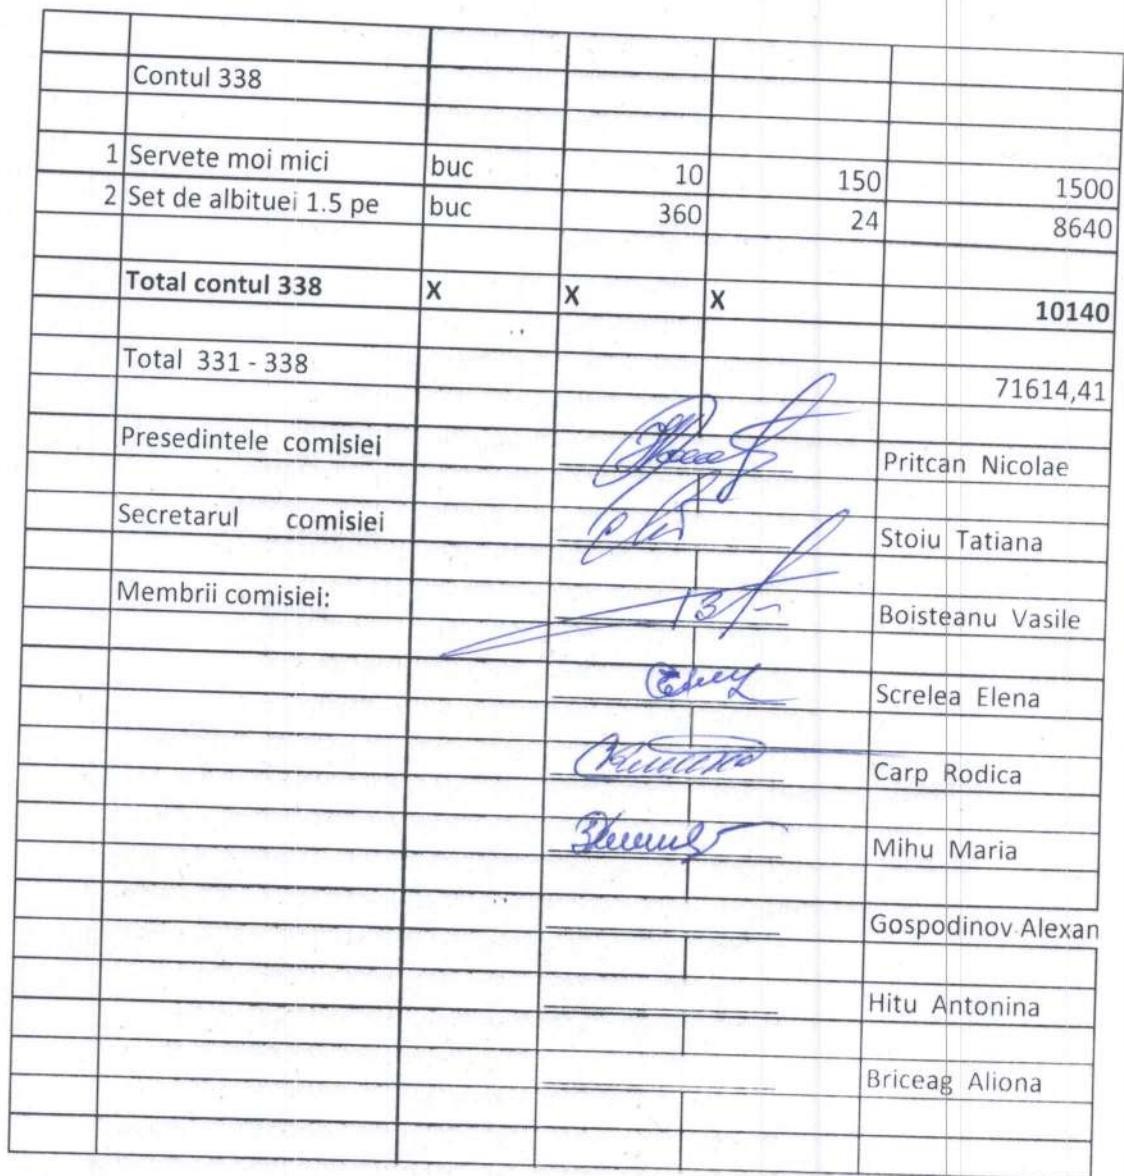 Contul 338
1 Servete moi mici buc 10 150 1500
2 Set de albituei 1.5 pe buc 360 24 8640
Total contul 338 X X X 10140
Total 331 - 338 71614,41
Presedintele comisiei Pritcan Nicolae
Secretarul comisiei Stoiu Tatiana
Membrii comisiei: Boisteanu Vasile
Screlea Elena
Carp Rodica
Mihu Maria
Gospodinov Alexan
Hitu Antonina
Briceag Aliona